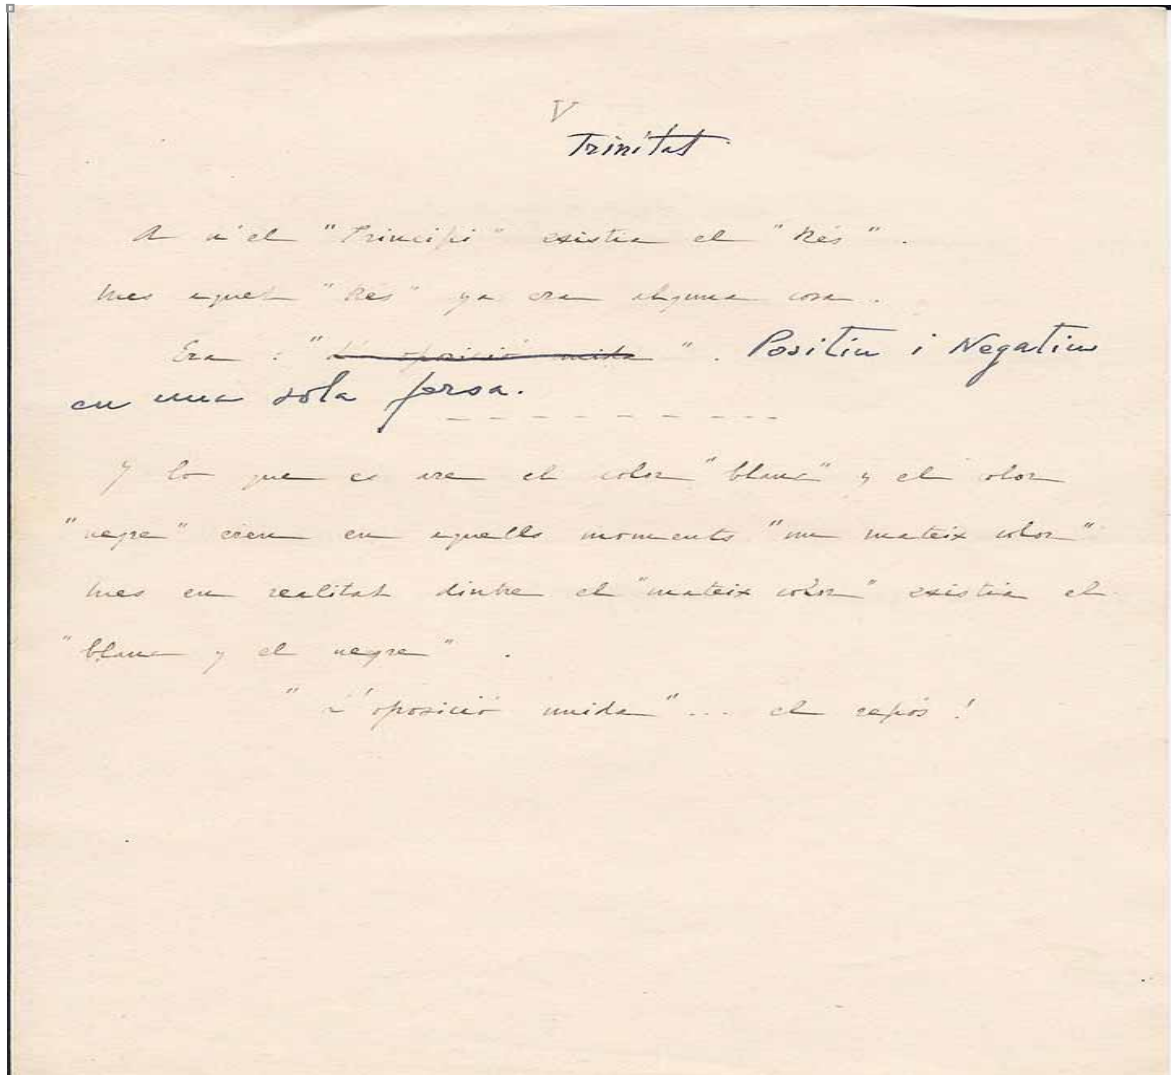 V
Trinitat
A n'el "Principi" existia el "Rés".
Mes aquet "Res" ya era alguna cosa.
Era : "L'oposició unida". Positiu i Negatiu
en una sola forsa.
Y lo que es are el color "blanc" y el color
"negre" eren en aquells moments "un mateix color"
Mes en realitat dintre el "mateix color" existia el
"blanc y el negre".
"L'oposició unida"... el repós!